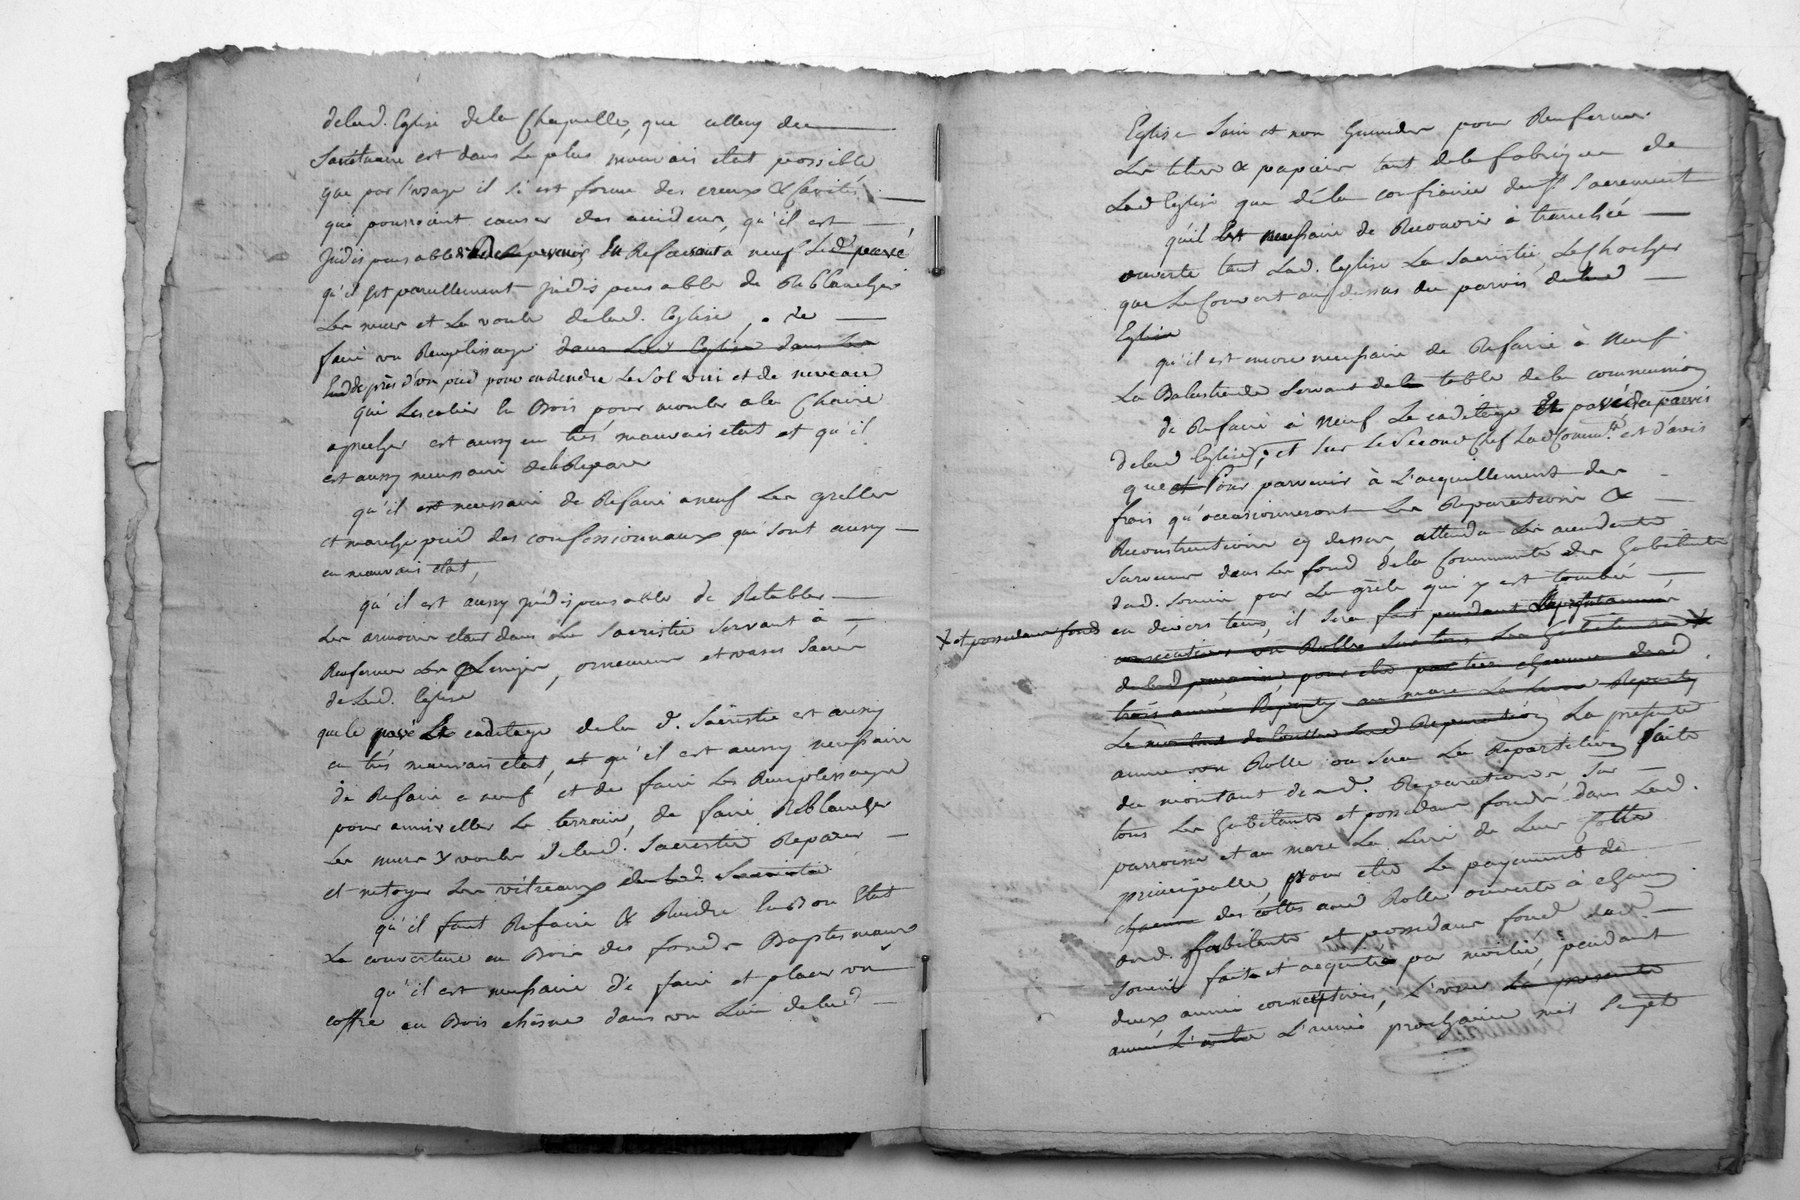 delad. Eglise de la Chapelle, que celluy du
Sanctuaire est dans le plus mauvais etat possible
que par l'usage il s'i est formé des creux & cavités
qui pourroient causer des accidens, qu'il est
Jndispensable En Refaisant à neuf Led. pavé
qu'il Est parcillement Jndispensable de Reblanchir
Les murs et La voute delad. Eglise, de
faire un Remplissage dans Lad. Eglise dans
près d'un pied pour en Rendre Le Sol uni et de niveau
que Lescalier En Bois pour monter a la Chaire
aprecher est aussy en très mauvais etat et qu'il
est aussy necessaire de le Reparer
qu'il est necessaire de Refaire aneuf Les grilles
et marche pied des confessionnaux qui sont aussy
en mauvais etat,
qu'il est aussy jndispensable de Retablir
Les armoires etant dans La Sacristie Servant à
Renfermer Les Linges, ornemens et vases Sacrés
de Lad. Eglise
que le pavé cadetage de la d. Sacristie est aussy
en très mauvais etat, et qu'il est aussy necessaire
de Refaire a neuf et de faire Les Remplissages
pour anniveller Le terrein, de faire Reblanchir
Les murs & voute delad. Sacristie Reparer
et netoyer Les vitreaux de lad. Sacristie
qu'il faut Refaire & Rendre En Bon Etat
La couverture en Bois des fonds Baptismaux
qu'il est necessaire de faire et placer un
coffre en Bois chesne dans un Lieu delad.
Eglise Sain et non humide pour Renfermer
Les titres & papiers tant de la fabrique de
Lad Eglise que de la confrairie du St Sacrement
qu'il Est necessaire de Recouvrir à tranchée
ouverte tant Lad. Eglise La Sacristie, Le Clocher
que Le Couvert au dessus du parvis delad
Eglise
qu'il est encore necessaire de Refaire à Neuf
La Balustrade Servant de table de la communion
de Refaire à neuf Le cadetage Et pavé du parvis
delad Eglise; et Sur Le Second Chef Lad Commté est d'avis
que et Pour parvenir à L'acquittement des
frais qu'occasionneront Les Reparations &
Reconstructions cy dessus, attendu Les accidents
Survenus dans Les fond de la Communauté des habitants
dud. Souin par La grele qui y est tombée
X et possedans fonds
en divers tems, il Sera fait pendant
consecutives un Rolle Sur tous Les habitans X
de lad paroisse pour etre chacune desd
trois année au marc La Livre
Le montant de toutes Lesd Reparations La presente
année un Rolle ou Sera La Repartition faite
du montant desd. Reparations Sur
tous Les habitants et possedans fonds dans Lad.
parroisse et au marc La Livre de Leur Cotte
principalle, pour etre Le payement de
chacune des cottes aud Rolle ouverte à chacun
desd. habitants et possedans fond dud.
Souin fait et acquitté par moitié, pendant
deux année consecutives, L'une La presente
année L'autre L'année prochaine mil Sept